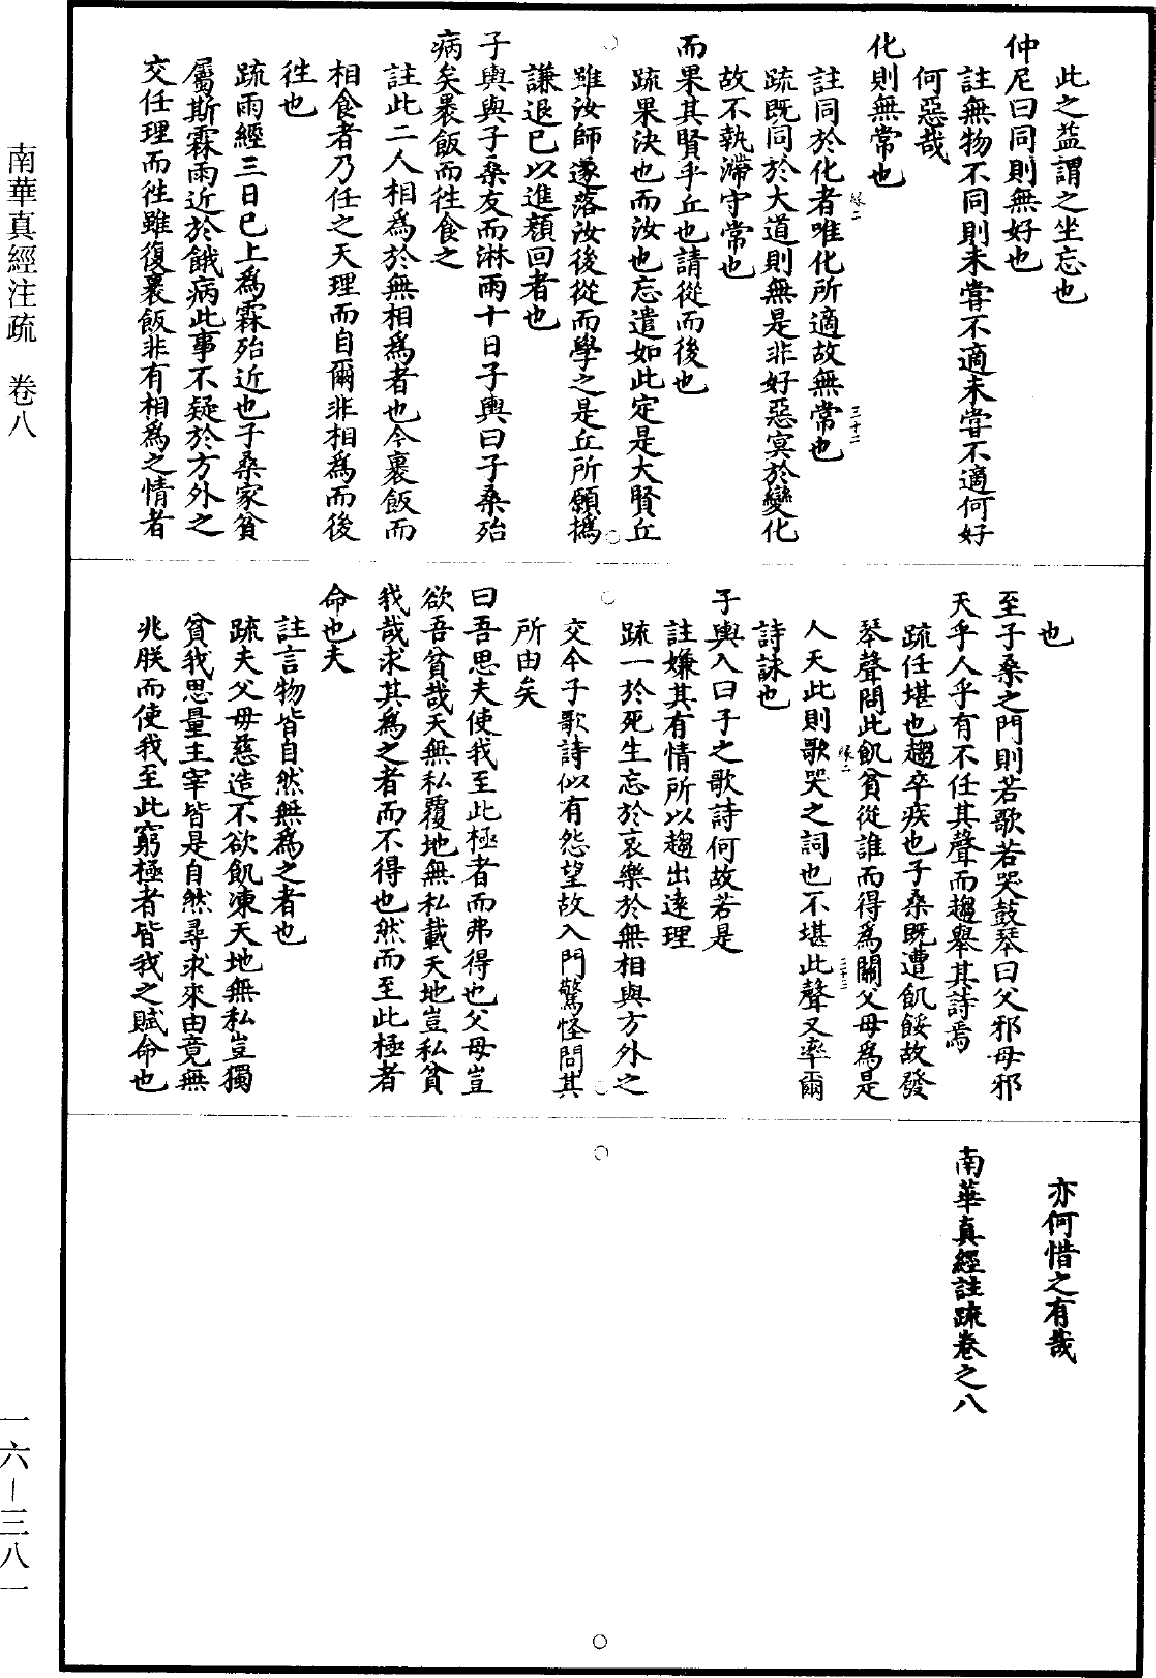 此之益謂之坐忘也
仲尼曰同則無好也
註無物不同則未嘗不適未嘗不適何好
何惡哉
化則無常也
註同於化者唯化所適故無常也
疏既同於大道則無是非好惡㝠於變化
故不執滯守常也
而果其賢乎丘也請從而後也
疏果決也而汝也忘遣如此定是大賢丘
雖汝師遂落汝後從而學之是丘所願撝
謙退已以進顏回者也
子輿與子桑友而淋雨十日子輿曰子桑殆
病矣裹飯而徃食之
註此二人相爲於無相爲者也今裹飯而
相食者乃任之天理而自爾非相爲而後
徃也
疏雨經三日已上爲霖殆近也子桑家貧
屬斯霖雨近於餓病此事不疑於方外之
交任理而徃雖復裹飯非有相爲之情者
也
至子桑之門則若歌若哭鼓琴曰父邪母邪
天乎人乎有不任其聲而趨舉其詩焉
疏任堪也趨卒疾也子桑既遭飢餒故發
琴聲問此飢貧從誰而得爲關父母爲是
人天此則歌哭之詞也不堪此聲又率爾
詩詠也
子輿入曰子之歌詩何故若是
註嫌其有情所以趨出逺理
疏一於死生忘於哀樂於無相與方外之
交今子歌詩似有怨望故入門驚怪問其
所由矣
曰吾思夫使我至此極者而弗得也父母豈
欲吾貧哉天無私覆地無私載天地豈私貧
我哉求其爲之者而不得也然而至此極者
命也夫
註言物皆自然無爲之者也
疏夫父母慈造不欲飢凍天地無私豈獨
貧我思量主宰皆是自然尋求來由竟無
兆朕而使我至此窮極者皆我之賦命也
亦何惜之有哉
南華真經註疏卷之八
南華真經注疏　卷八
一六—三八一
三十二
三十三